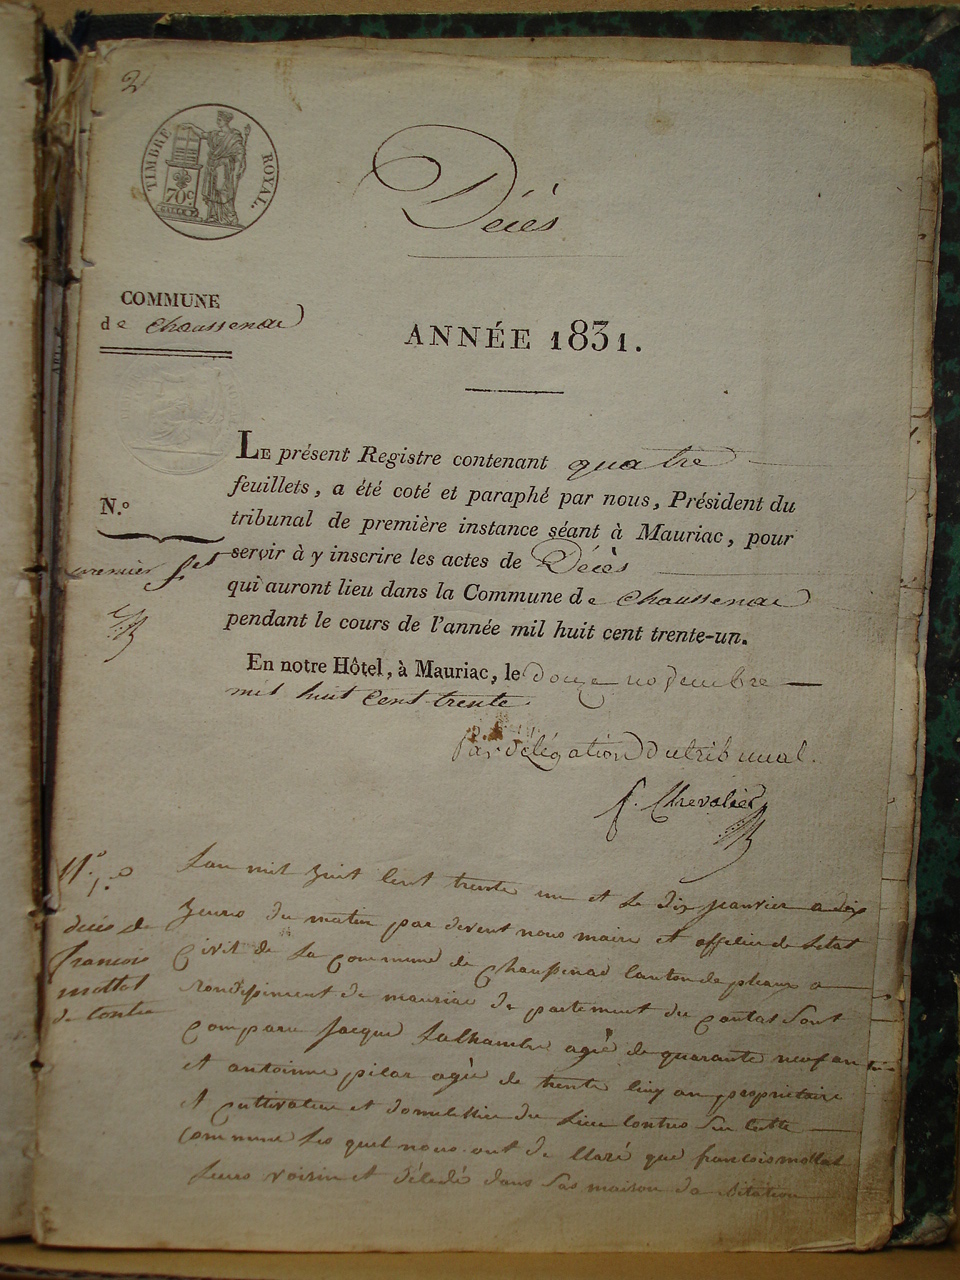 2
TIMBRE ROYAL.
70c
Décès
COMMUNE
de Chaussenac
ANNÉE 1831.
LE présent Registre contenant quatre
feuillets, a été coté et paraphé par nous, Président du
tribunal de première instance séant à Mauriac, pour
servir à y inscrire les actes de Décès
qui auront lieu dans la Commune de Chaussenac
pendant le cours de l'année mil huit cent trente-un.
N.º
premier f.et
En notre Hôtel, à Mauriac, le douze novembre
mil huit cent trente
Par délégation du tribunal.
f. Chevalier
N.º 1.º
décis de
francois
mottat
de Contre
Lan mil huit Cent trente un et le dix janvier a dix
heures du matin par devent nous maire et officier de letat
Civil de La Commune de Chaussenac Canton de pleaux a
rondissiment de mauriac de partement du Cantal Sont
Comparu Jacque Lalhambre agé de quarante neuf an
et antoinne pilar agé de trente Cinq an propriétaire
et Cultivateur et domestice du Lieu Contres Sur Cette
Commune Les quel nous ont de Claré que francois mottat
Leurs voisin et Décédé dans Sas maison da bitation